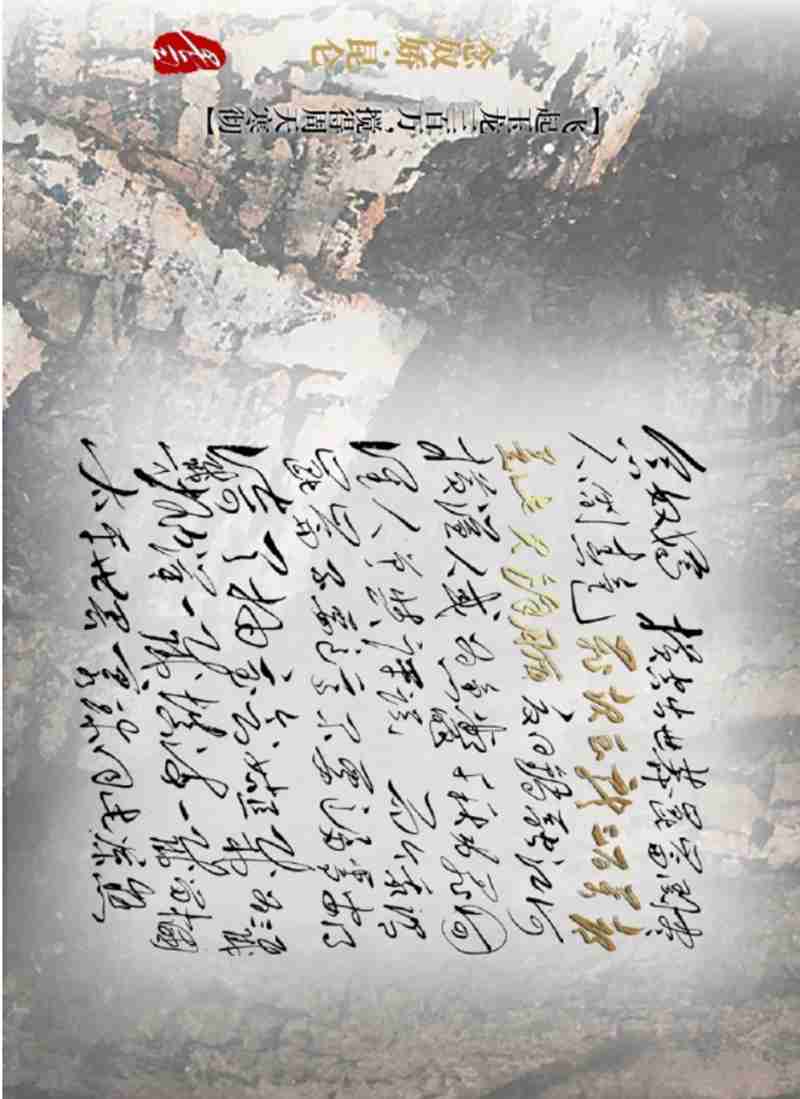 念奴娇·昆仑
【飞起玉龙三百万,搅得周天寒彻】
念奴娇 横空出世莽昆仑阅尽
人间春色飞起玉龙三百万
搅得周天寒彻夏日消融江河
横溢人或为鱼鳖千秋功罪
谁人曾与评说 而今我谓
昆仑不要这高不要这多雪安得
倚天抽宝剑把汝裁为三截
一截一截一截中国
太平世界环球同此凉热